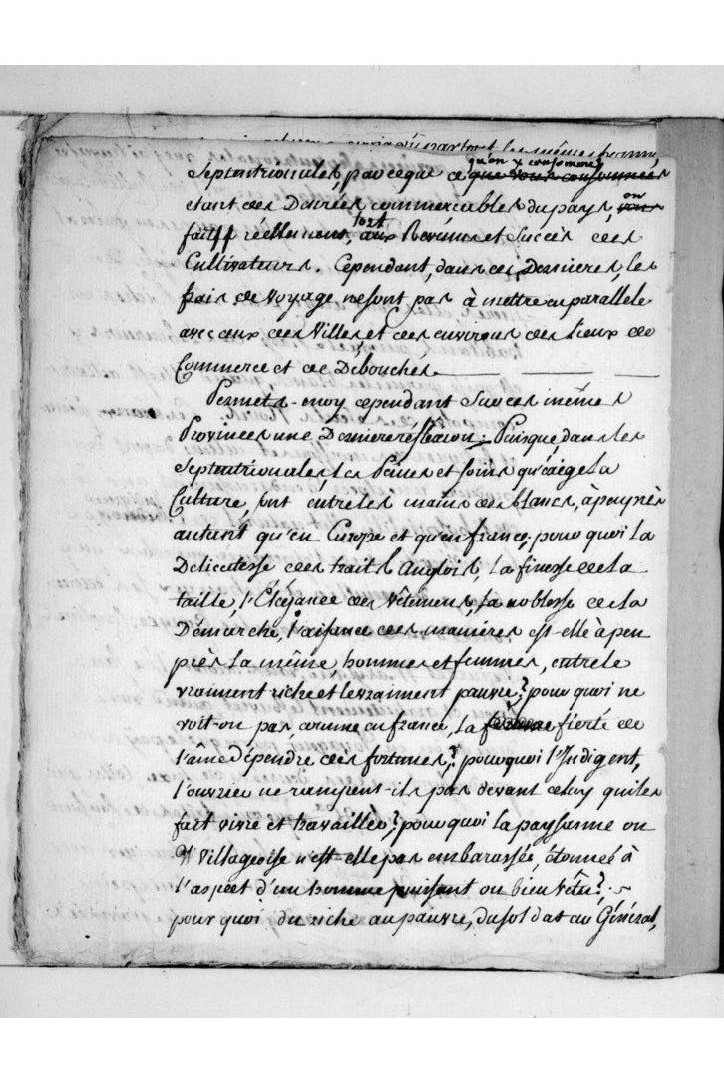 les mêmes
qu'on y consomme
Septentrionales, parceque ce que vous consommés
etant des Denrées commerciables du pays, vous on
fait réellement, aux fort Revenus et Succès des
Cultivateurs. Cependant, dans ces Dernieres, les
frais de voyage ne sont pas à mettre en parallele
avec ceux des Villes et des environs des lieux de
Commerce et de Débouchés.
Permets-moy cependant Sur ces mêmes
Provinces une Derniere réflexion: Puisque, dans les
Septentrionales, les Peines et soins qu'éxige la
Culture, sont entre les mains des blancs, àpeuprès
autant qu'en Europe et qu'en france, pourquoi la
Délicatesse des traits Anglois, la finesse de la
taille, l'Elégance des vêtemens, la noblesse de la
Démarche, l'aisance des manières est-elle àpeu
près la même, hommes et femmes, entre le
vraiment riche et le vraiment pauvre? pourquoi ne
voit-on pas, comme en france, la fierté de
l'âme dépendre des fortunes? pourquoi l'Indigent,
l'ouvrier ne rampent-ils pas devant celuy qui les
fait vivre et travailler? pourquoi la paysanne ou
Villageoise n'est-elle pas embarassée, étonnée à
l'aspect d'un homme puissant ou bien Vêtu?
pourquoi du riche au pauvre, du soldat au Général,